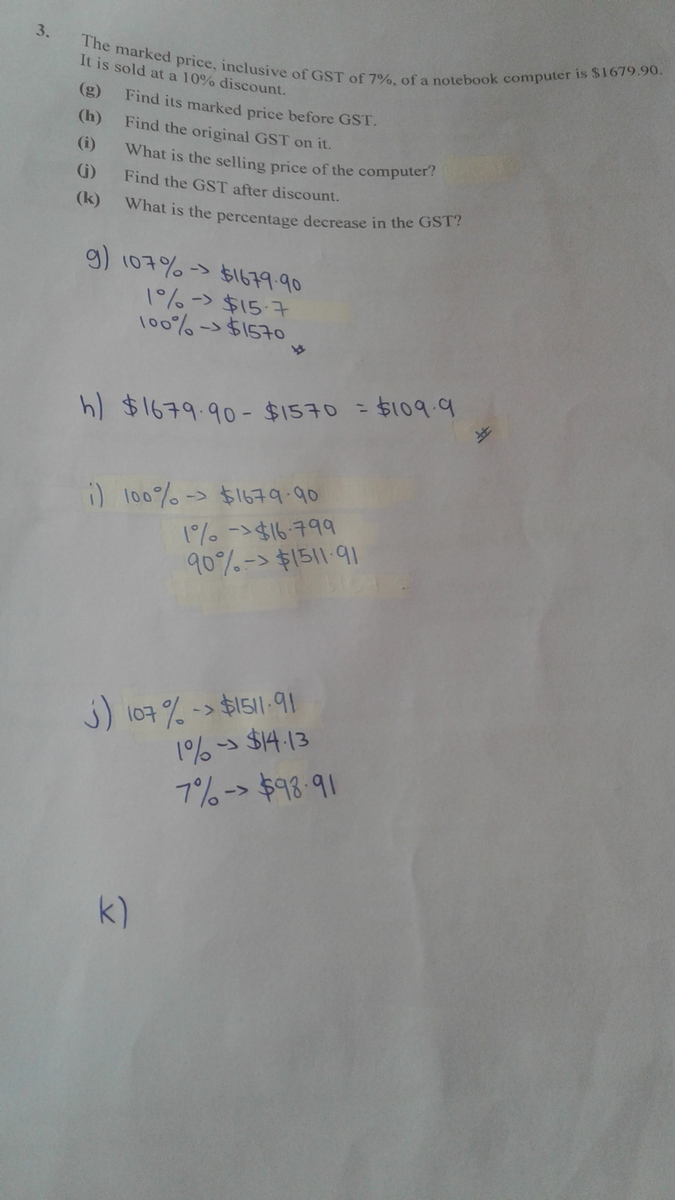 3. The marked price, inclusive of GST of 7%, of a notebook computer is $1679.90.
It is sold at a 10% discount.
(g) Find its marked price before GST.
(h) Find the original GST on it.
(i) What is the selling price of the computer?
(j) Find the GST after discount.
(k) What is the percentage decrease in the GST?
g) 107% -> $1679.90
1% -> $15.7
100% -> $1570
h) $1679.90 - $1570 = $109.9
i) 100% -> $1679.90
1% -> $16.799
90% -> $1511.91
j) 107% -> $1511.91
1% -> $14.13
7% -> $98.91
k)